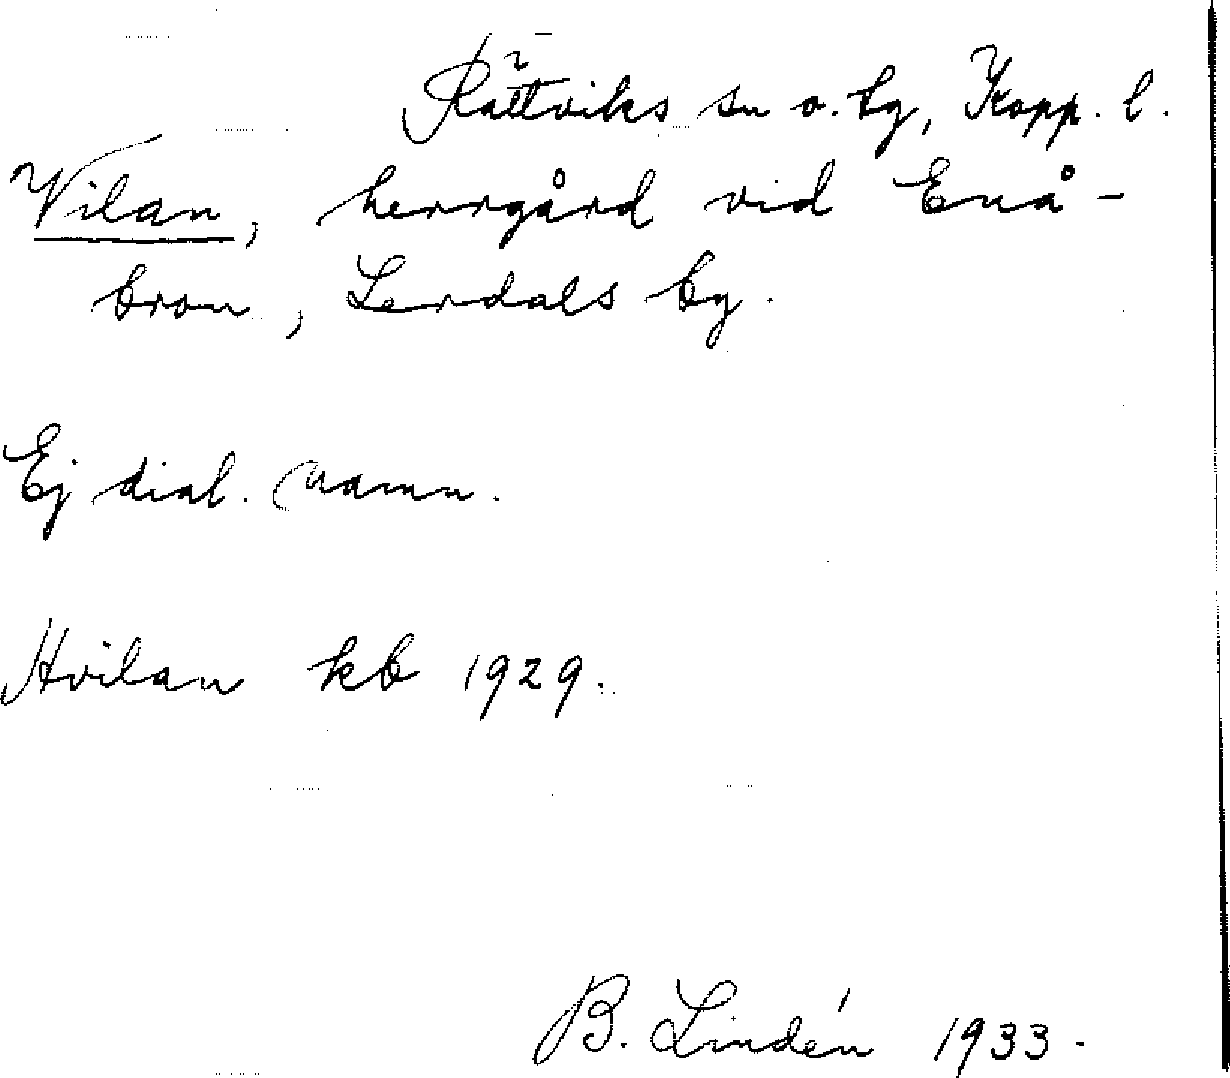 Rättviks sn o. tg, Kopp. l.
Vilan, herrgård vid Enå-
bron, Lerdals by.
Ej dial. namn.
Hvilan kb 1929.
B. Lindén 1933.